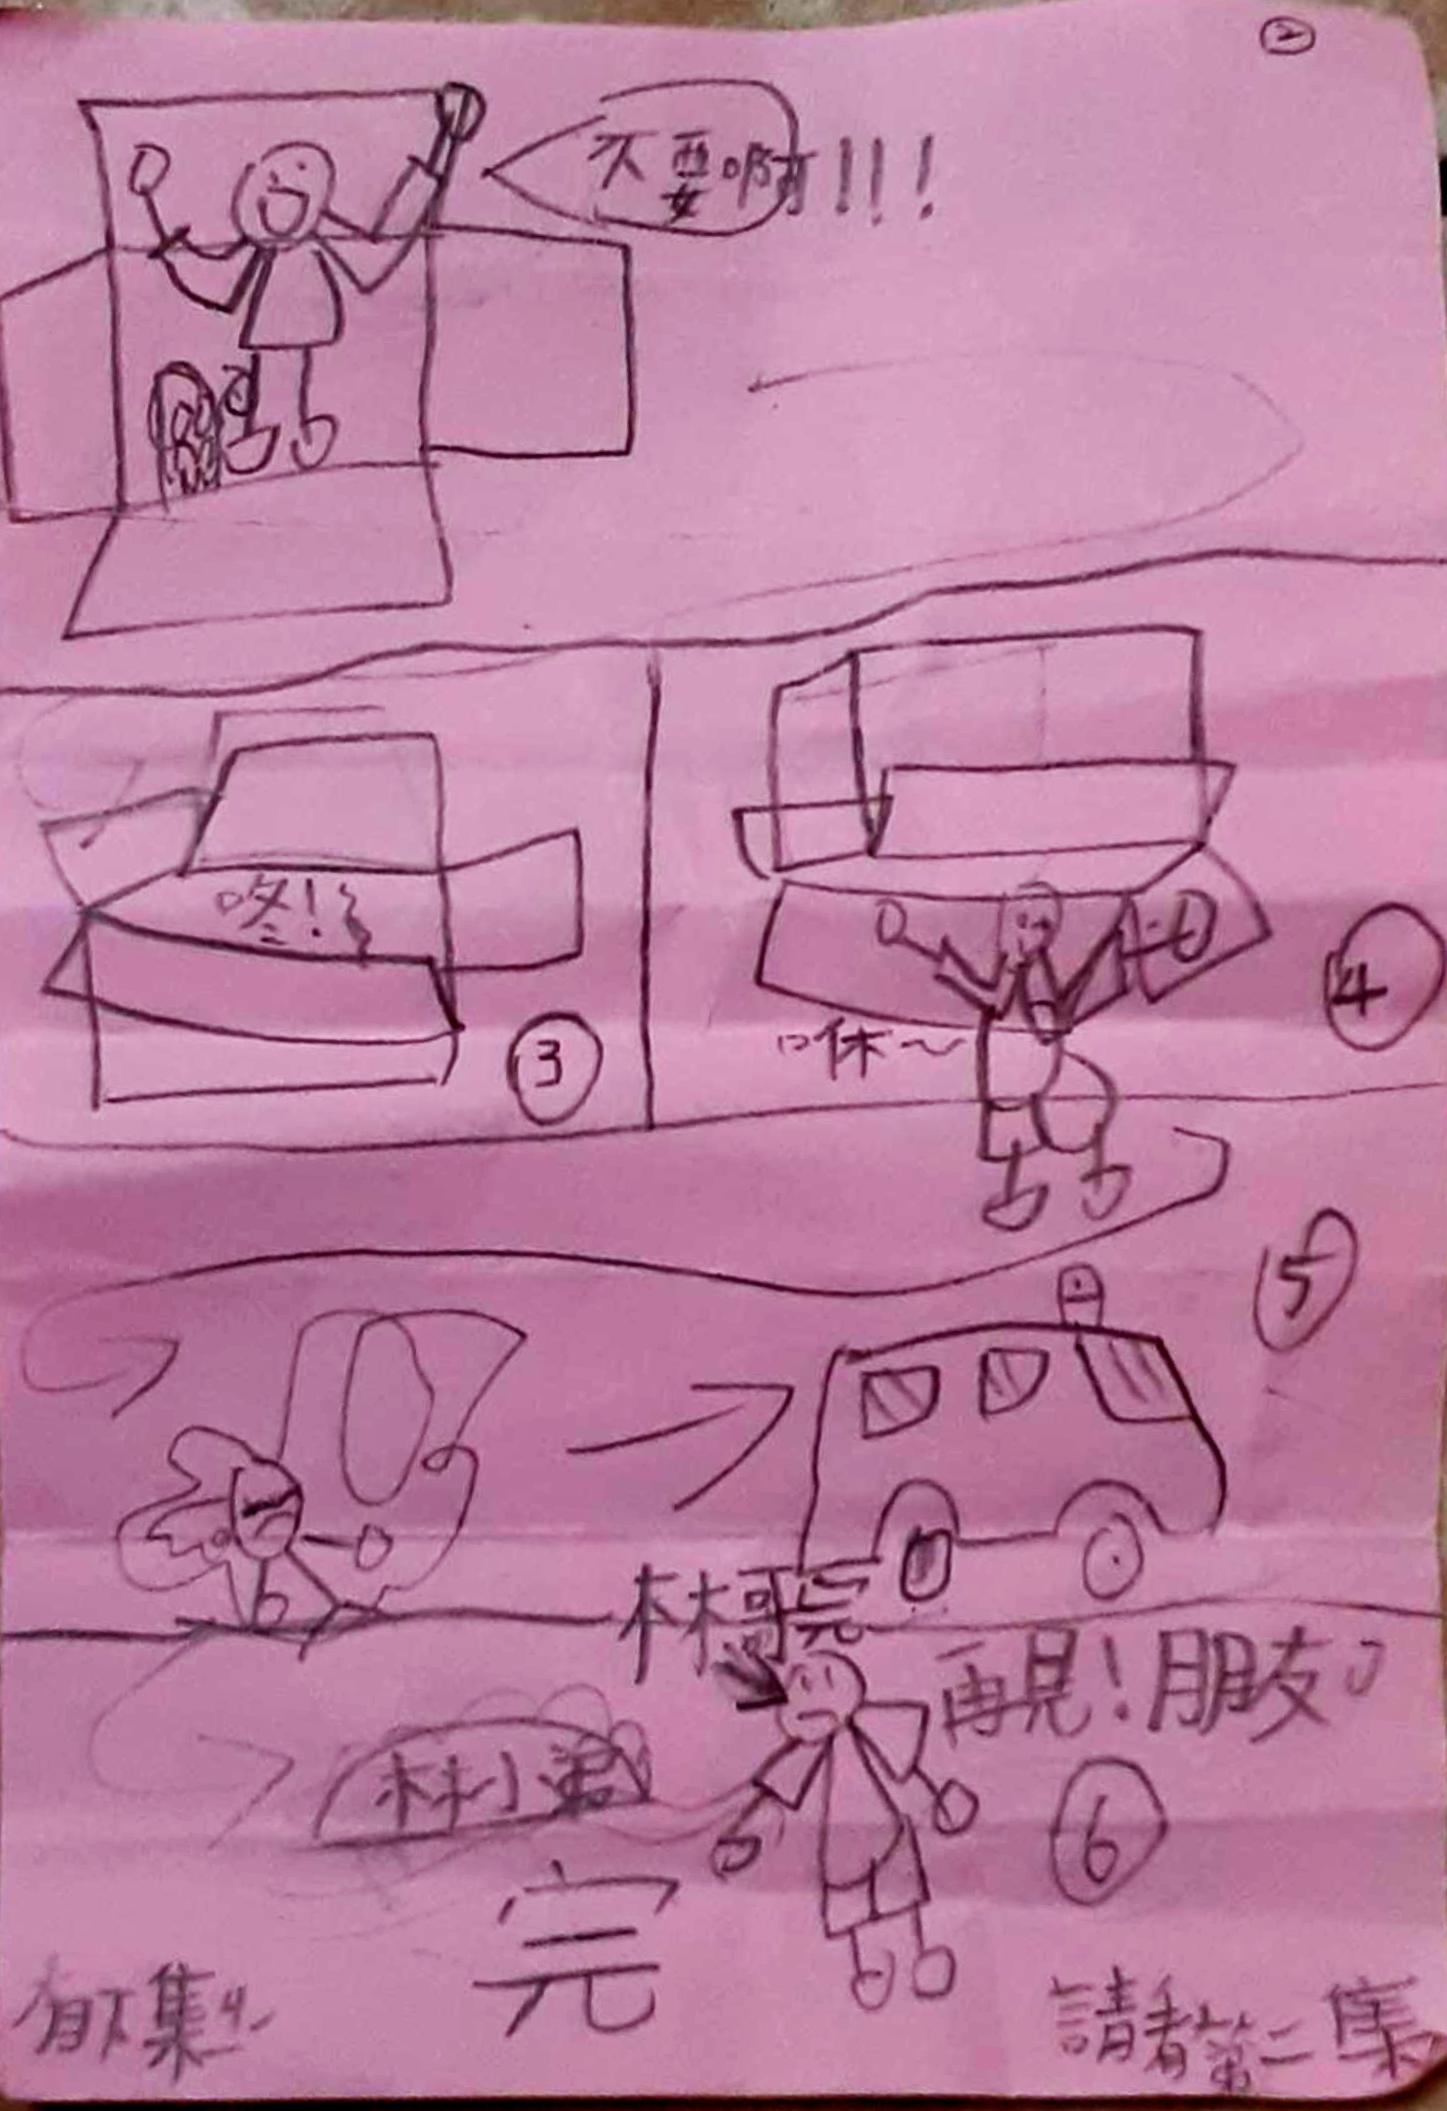 ②
不要啊!!!
咚!
③
④
咻~
⑤
林哥完
再見!朋友
林小弟
⑥
完
有下集
請看第二集